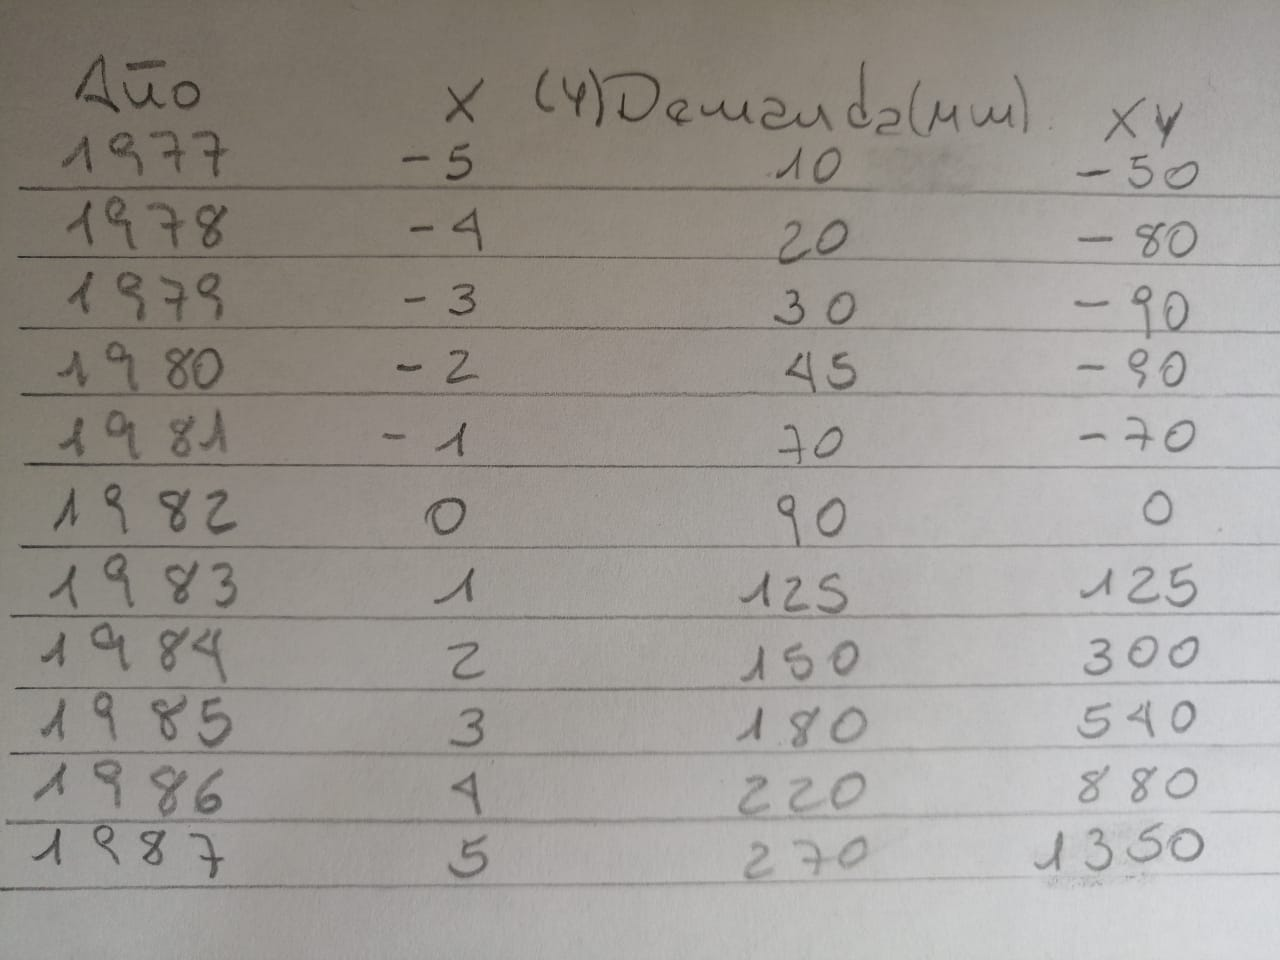 Año X (Y) Demanda (MM) XY
1977 -5 10 -50
1978 -4 20 -80
1979 -3 30 -90
1980 -2 45 -90
1981 -1 70 -70
1982 0 90 0
1983 1 125 125
1984 2 150 300
1985 3 180 540
1986 4 220 880
1987 5 270 1350